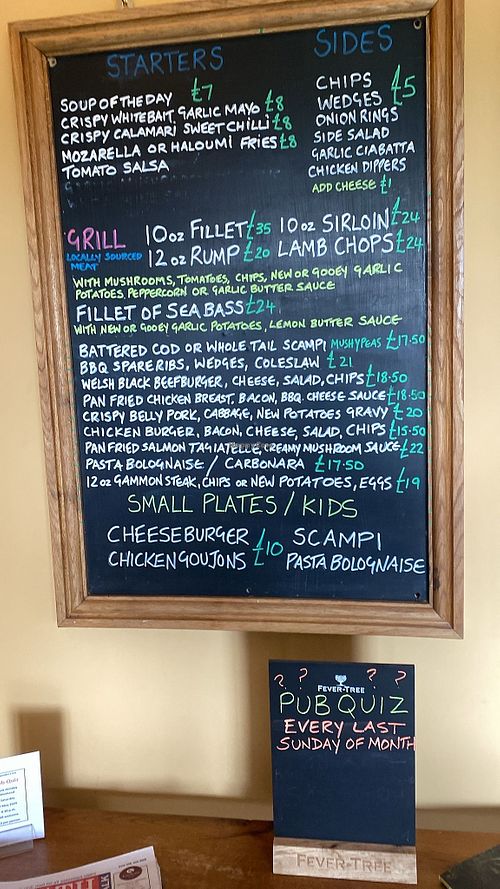 STARTERS
SOUP OF THE DAY £7
CRISPY WHITEBAIT GARLIC MAYO £8
CRISPY CALAMARI SWEET CHILLI £8
MOZARELLA OR HALOUMI FRIES £8
TOMATO SALSA
SIDES
CHIPS
WEDGES £5
ONION RINGS
SIDE SALAD
GARLIC CIABATTA
CHICKEN DIPPERS
ADD CHEESE £1
GRILL
LOCALLY SOURCED
MEAT
10oz FILLET £35 10oz SIRLOIN £24
12oz RUMP £20 LAMB CHOPS £24
WITH MUSHROOMS, TOMATOES, CHIPS, NEW OR GOOEY GARLIC
POTATOES, PEPPERCORN OR GARLIC BUTTER SAUCE
FILLET OF SEA BASS £24
WITH NEW OR GOOEY GARLIC POTATOES, LEMON BUTTER SAUCE
BATTERED COD OR WHOLE TAIL SCAMPI MUSHY PEAS £17.50
BBQ SPARE RIBS, WEDGES, COLESLAW £21
WELSH BLACK BEEFBURGER, CHEESE, SALAD, CHIPS £18.50
PAN FRIED CHICKEN BREAST, BACON, BBQ CHEESE SAUCE £18.50
CRISPY BELLY PORK, CABBAGE, NEW POTATOES GRAVY £20
CHICKEN BURGER, BACON, CHEESE, SALAD, CHIPS £15.50
PAN FRIED SALMON TAGIATELLE, CREAMY MUSHROOM SAUCE £22
PASTA BOLOGNAISE / CARBONARA £17.50
12oz GAMMON STEAK, CHIPS OR NEW POTATOES, EGGS £19
SMALL PLATES / KIDS
CHEESEBURGER £10 SCAMPI
CHICKEN GOUJONS PASTA BOLOGNAISE
? ? ? ?
FEVER-TREE
PUB QUIZ
EVERY LAST
SUNDAY OF MONTH
FEVER-TREE